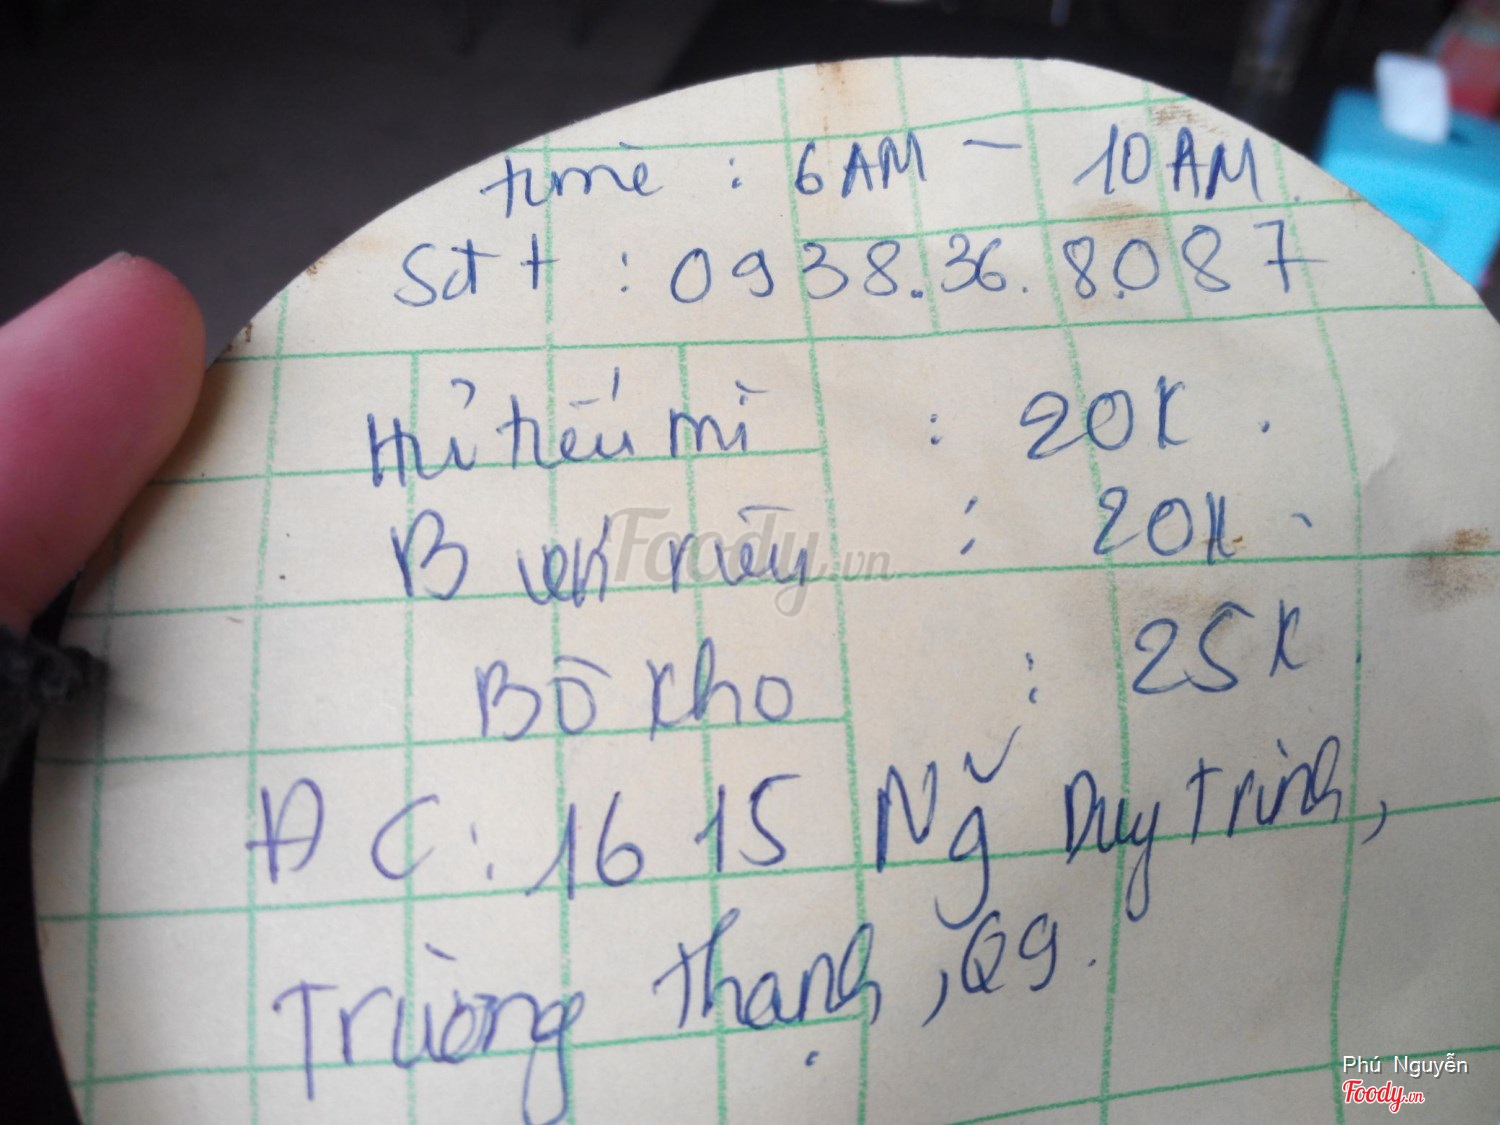 time : 6AM - 10AM.
Sđt : 0938.36.8.087
Hủ tiếú mì : 20K.
Bún riêu : 20K.
Bò kho : 25K
ĐC: 1615 Ng~ Duy Trinh,
Trường Thạnh, Q9.
Foody.vn
Phú Nguyễn
Foody.vn